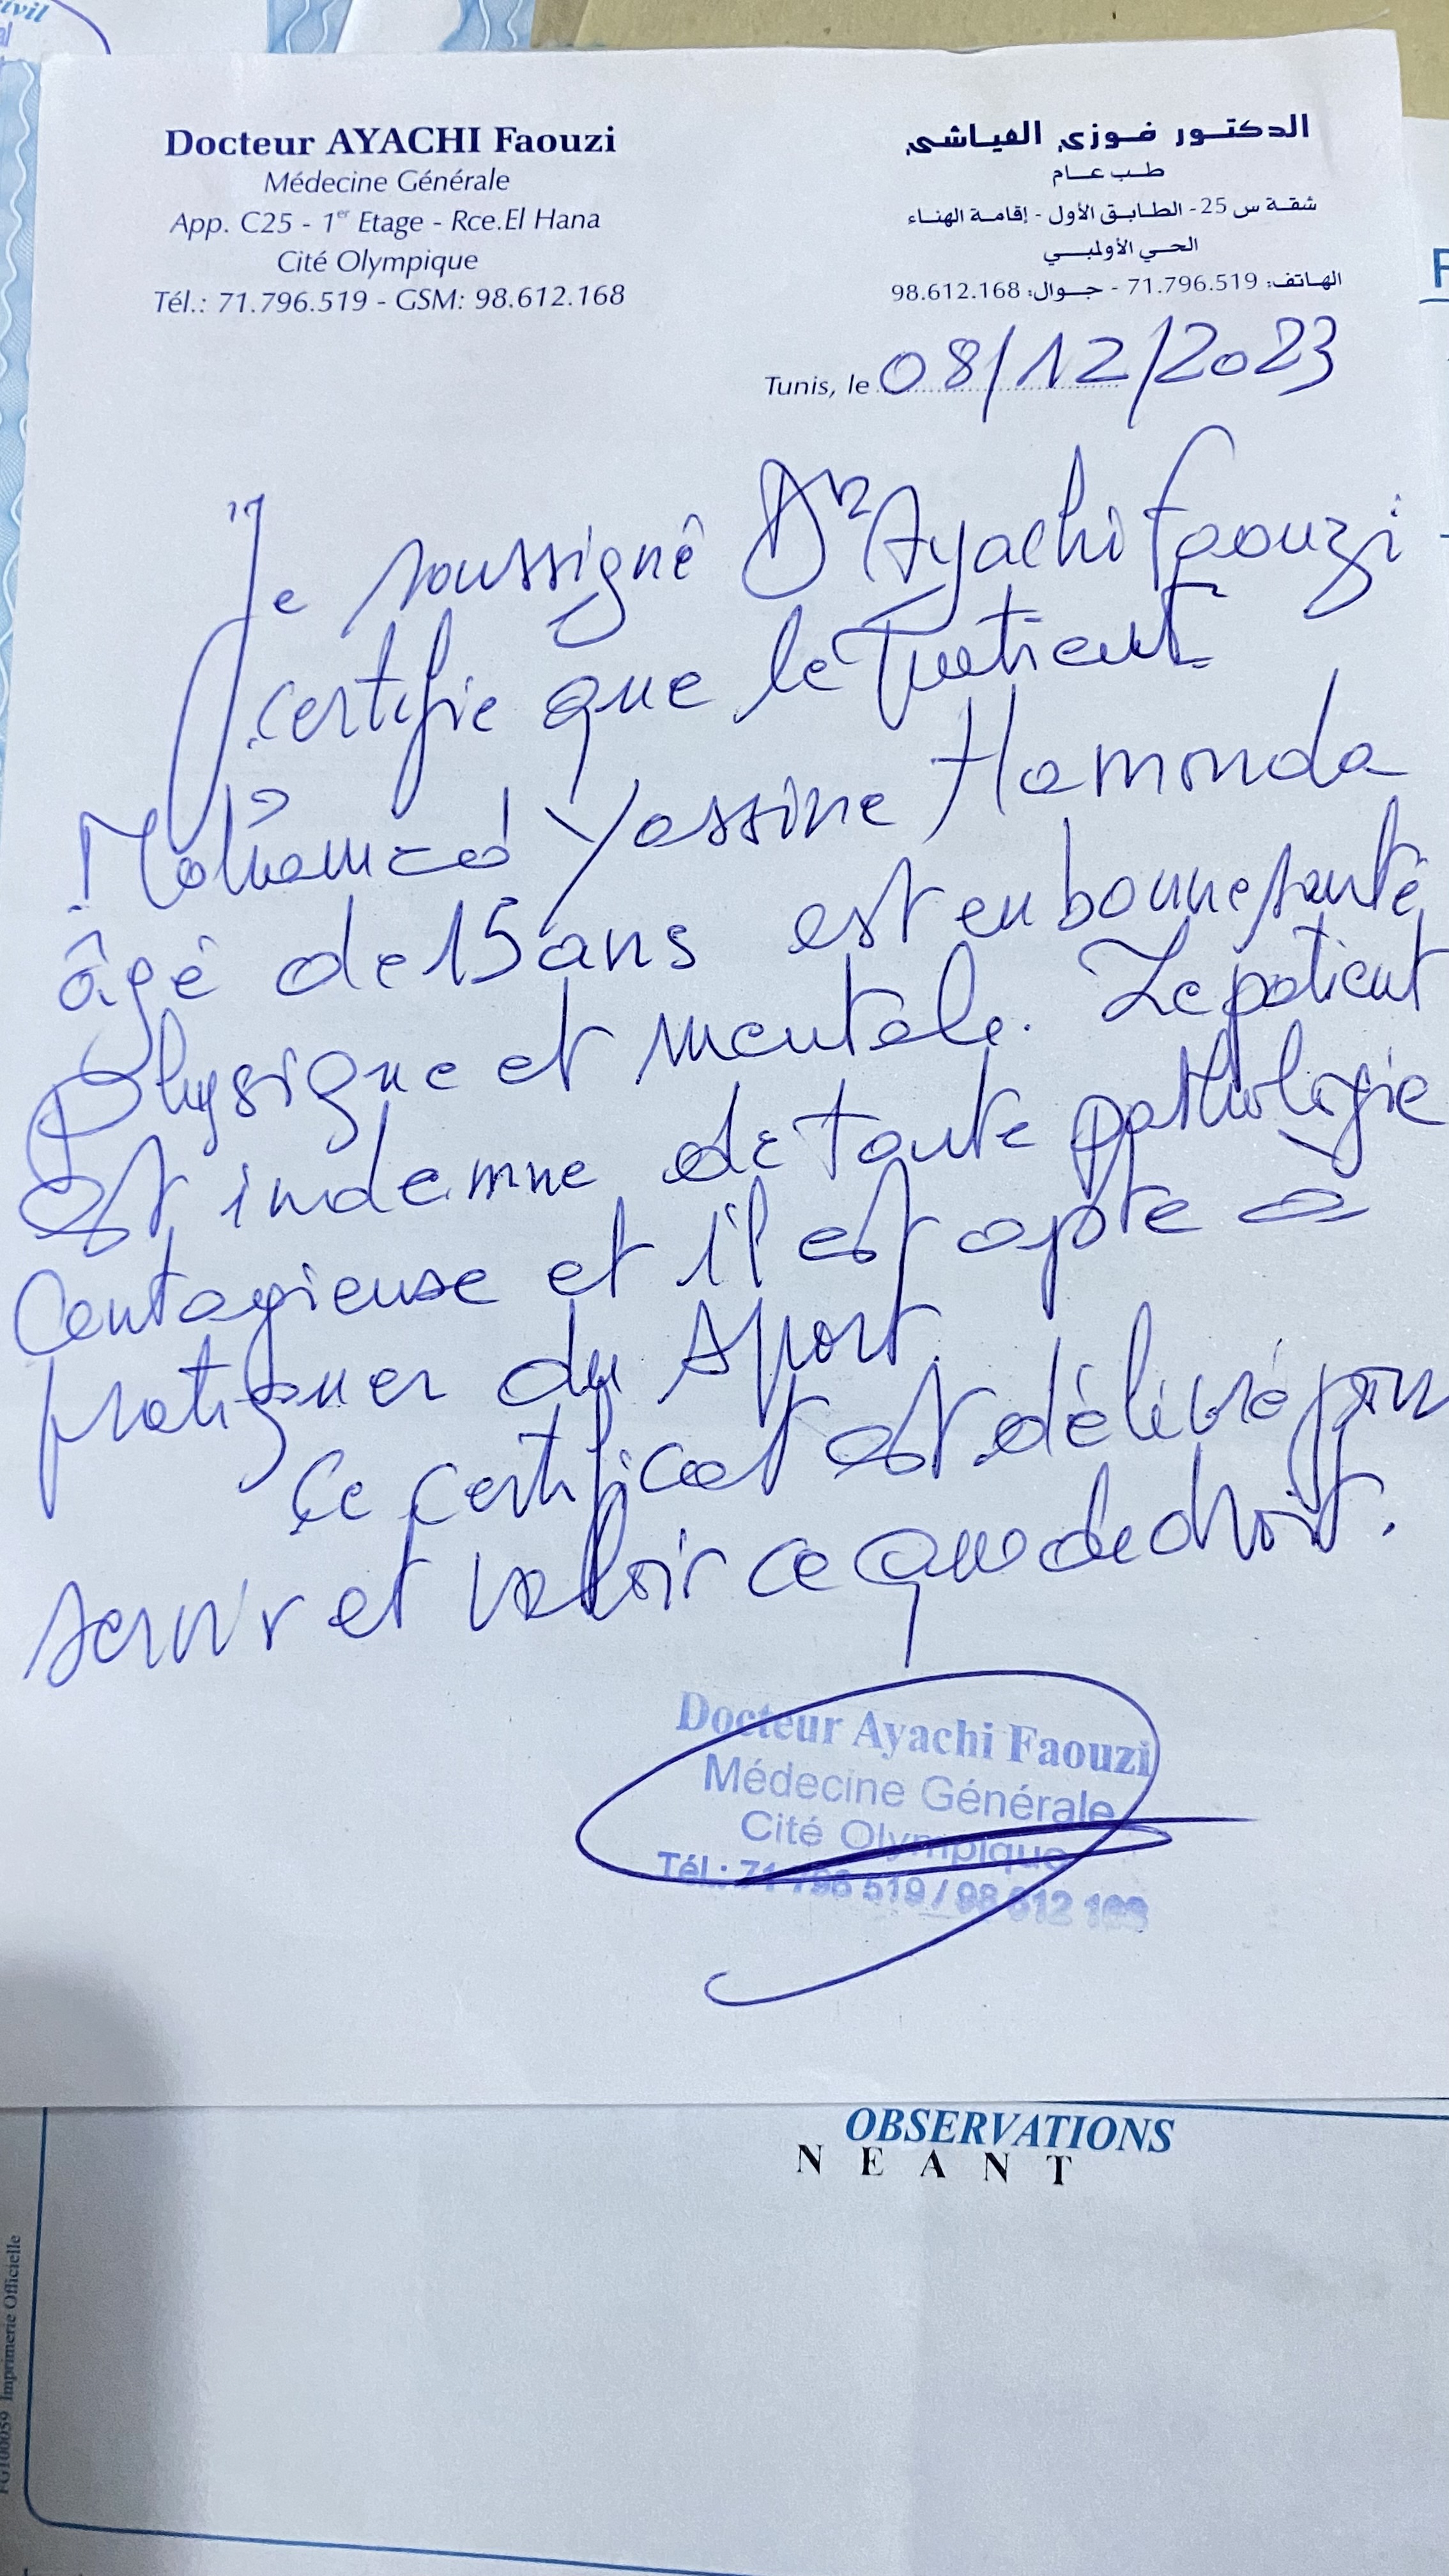 ivil
al
Docteur AYACHI Faouzi
Médecine Générale
App. C25 - 1er Etage - Rce.El Hana
Cité Olympique
Tél.: 71.796.519 - GSM: 98.612.168
الدكتور فوزي العياشي
طب عام
شقة س 25 - الطابق الأول - إقامة الهناء
الحي الأولمبي
الهاتف: 71.796.519 - جوال: 98.612.168
Tunis, le 08/12/2023
Je soussigné Dr Ayachi Faouzi
certifie que le Patient
Mohamed Yassine Hamouda
âgé de 15 ans est en bonne santé
Physique et mentale. Le patient
est indemne de toute pathologie
Contagieuse et il est apte à
pratiquer du sport.
Ce certificat est délivré pour
servir et valoir ce que de droit.
Docteur Ayachi Faouzi
Médecine Générale
Cité Olympique
Tél.: 71 796 519 / 98 612 168
OBSERVATIONS
N E A N T
FG100059 Imprimerie Officielle